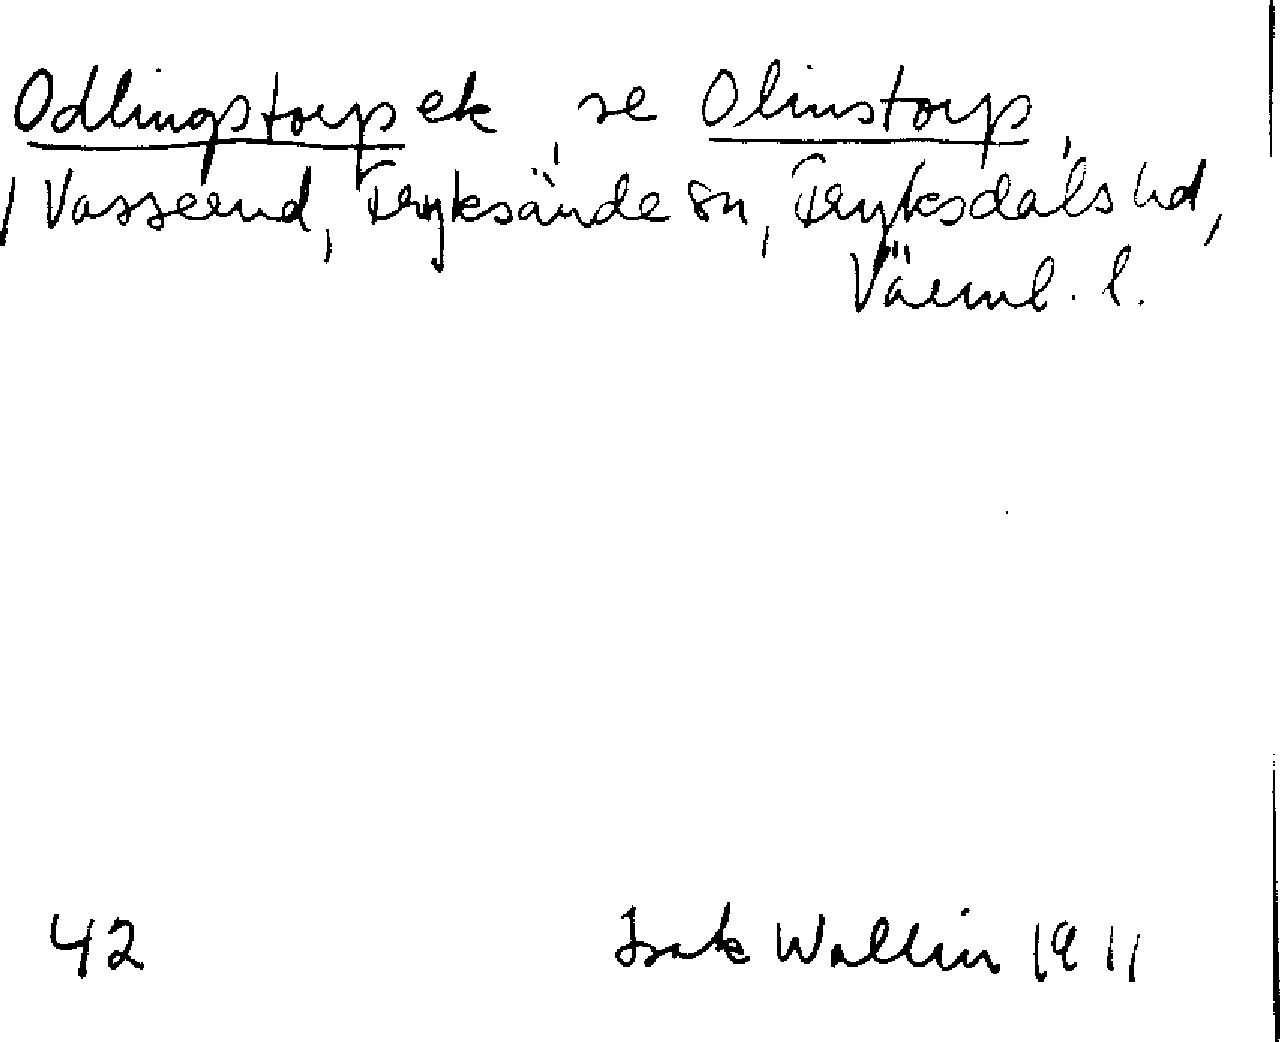 Odlingstorp ek se Olinstorp
Vasserud, Fryksände sn, Fryksdals hd,
Värml. l.
42 Isak Wallin 1911